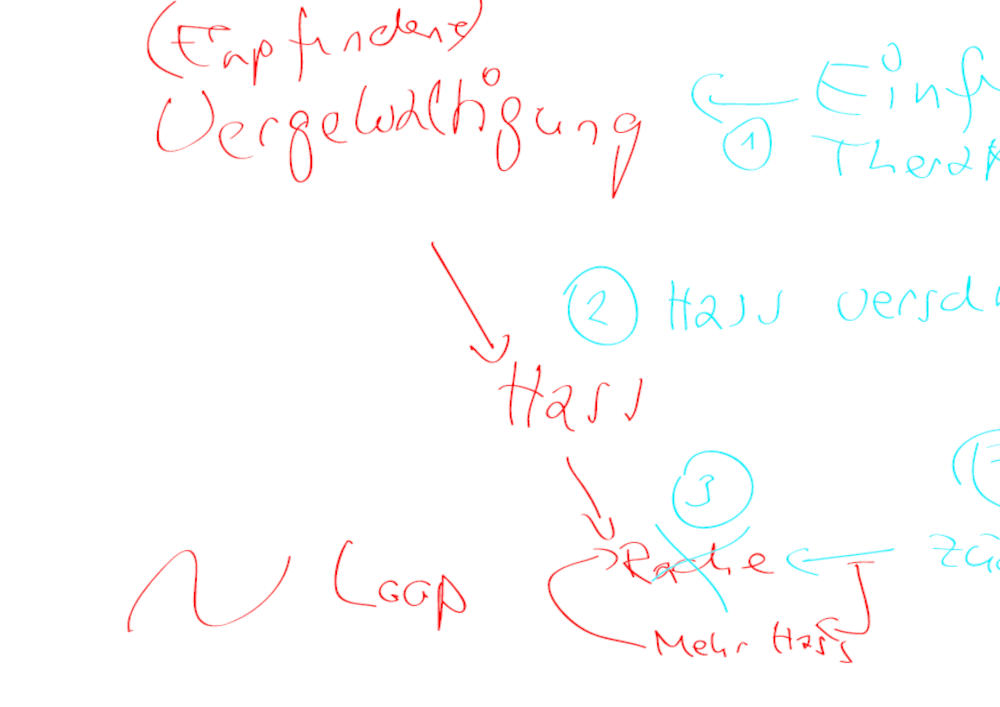 (Empfundene)
Vergewaltigung
① Einf
Therap
② Hass versch
Hass
③
Rache
zu
Loop
Mehr Hass